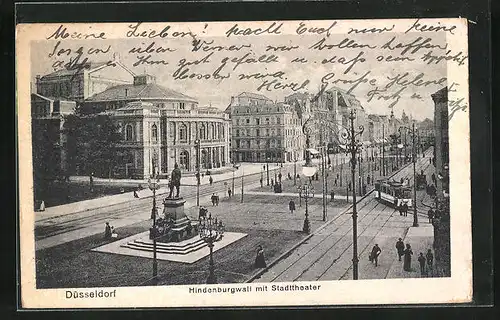 Meine Lieben! Macht Euch nur keine
Sorgen über Werner. Wir wollen hoffen
daß ihm gut gefällt u. daß
besser wird Herzl. Grüße Helene
Düsseldorf
Hindenburgwall mit Stadttheater